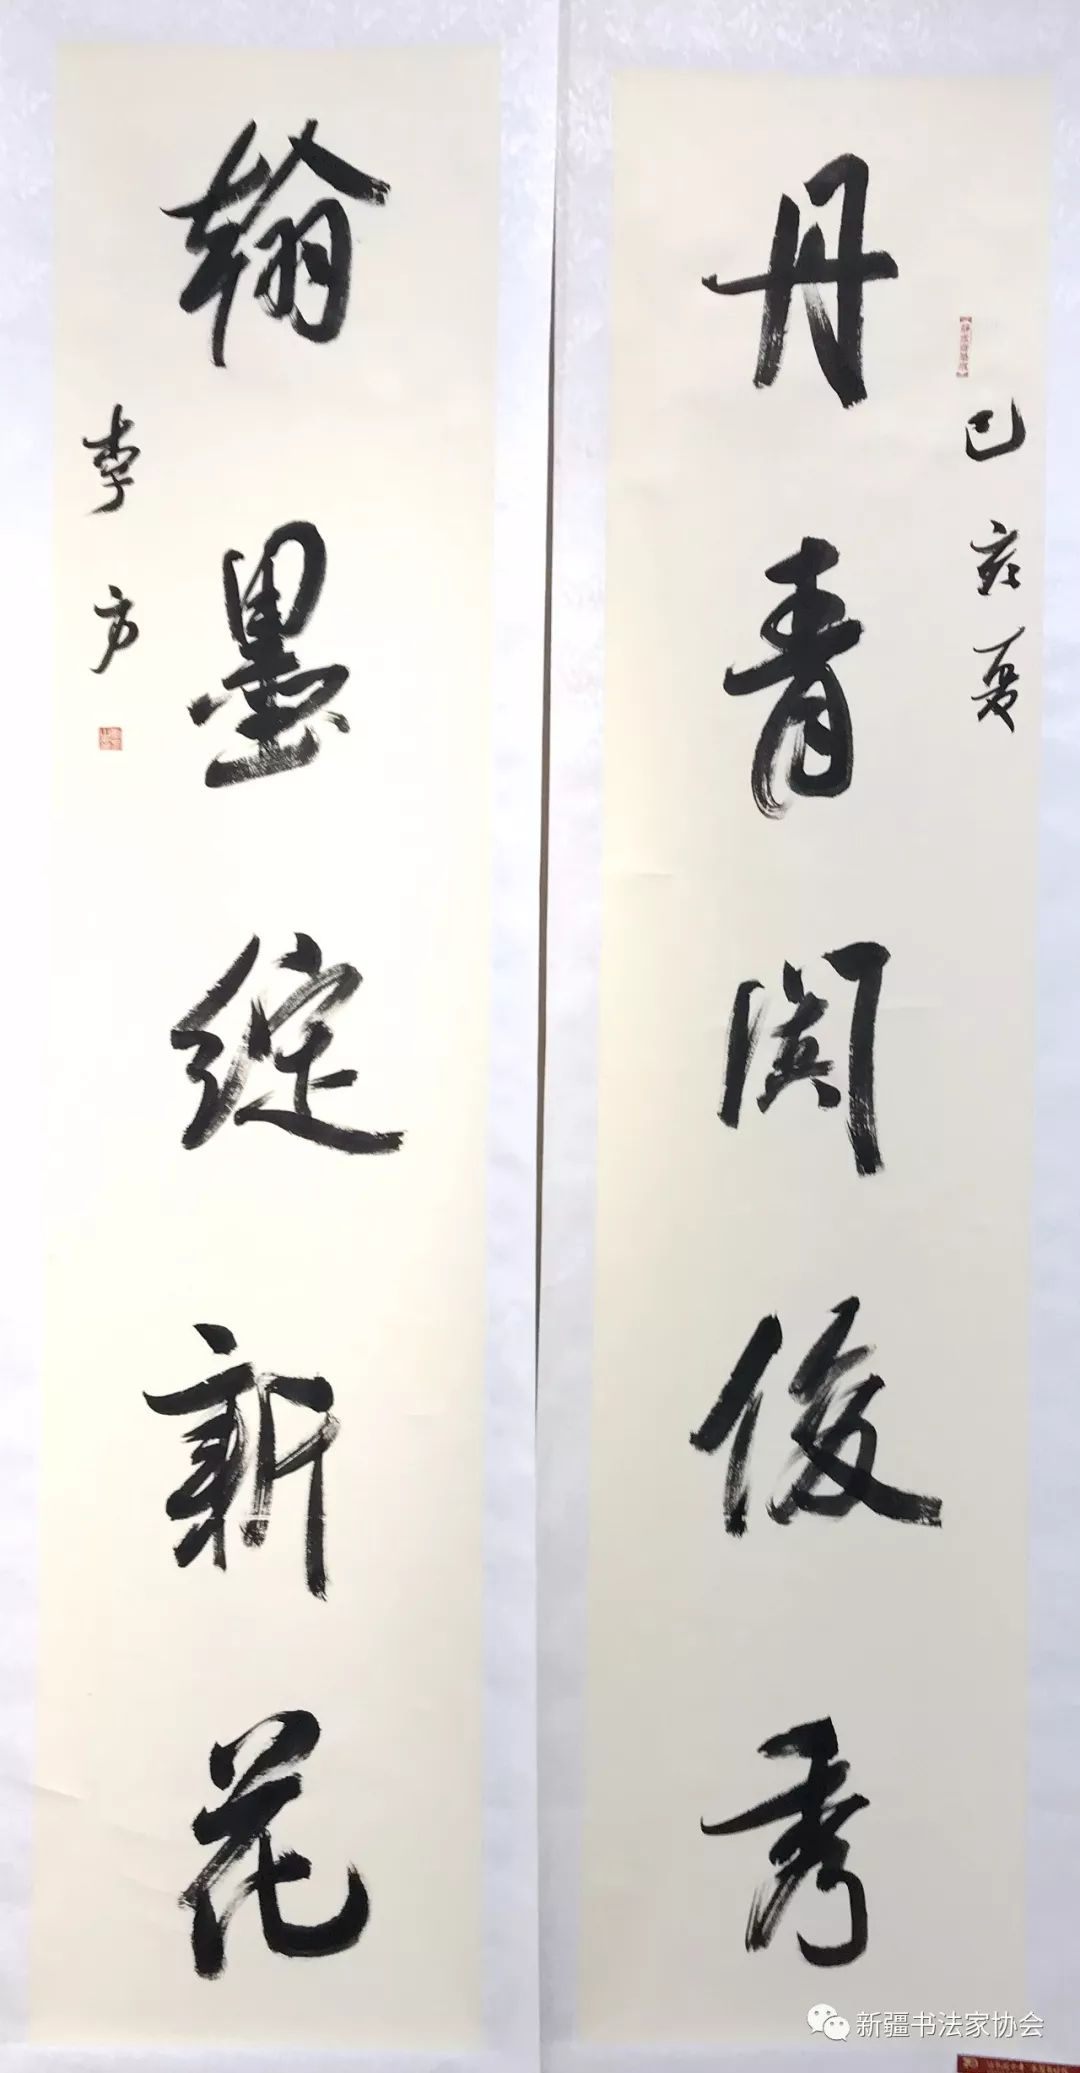 丹青阅俊秀
己亥夏
翰墨绽新花
李方
新疆书法家协会